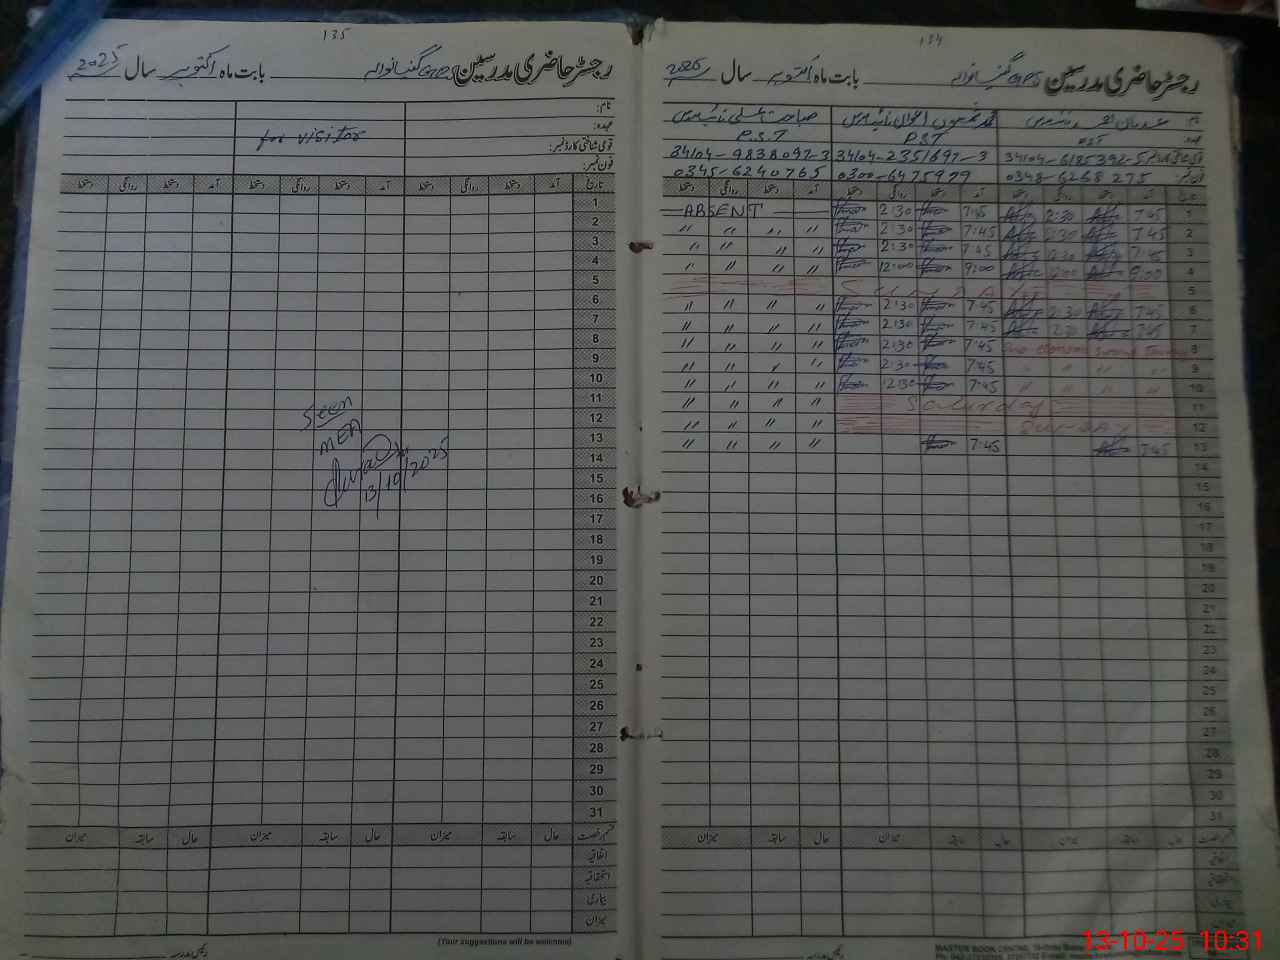 134
رجسٹر حاضری مدرسین GPS گنیانوالہ بابت ماہ اکتوبر سال 2025
نام:
عہدہ: PST P.S.T P.S.T
قومی شناختی کارڈ نمبر: 34104-6185392-5 34104-2351697-3 34104-9838092-3
فون نمبر: 0348-6268275 0300-6475979 0345-6240765
تاریخ آمد دستخط روانگی دستخط آمد دستخط روانگی دستخط آمد دستخط روانگی دستخط
1 7:45 2:30 7:45 2:30 ABSENT
2 7:45 2:30 7:45 2:30 〃 〃 〃 〃
3 7:45 2:30 7:45 2:30 〃 〃 〃 〃
4 9:00 12:00 9:00 12:00 〃 〃 〃 〃
5 SUNDAY
6 7:45 2:30 7:45 2:30 〃 〃 〃 〃
7 7:45 2:30 7:45 2:30 〃 〃 〃 〃
8 7:45 2:30 〃 〃 〃 〃
9 〃 〃 〃 〃 7:45 2:30 〃 〃 〃 〃
10 〃 〃 〃 〃 7:45 12:30 〃 〃 〃 〃
11 Saturday 〃 〃 〃 〃
12 SUNDAY 〃 〃 〃 〃
13 7:45 7:45 〃 〃 〃 〃
14
15
16
17
18
19
20
21
22
23
24
25
26
27
28
29
30
31
قسم رخصت حال سابقہ میزان حال سابقہ میزان حال سابقہ میزان
اتفاقیہ
استحقاقیہ
بیماری
میزان
MASTER BOOK CENTRE
135
رجسٹر حاضری مدرسین GPS گنیانوالہ بابت ماہ اکتوبر سال 2025
نام:
عہدہ: for visitor
قومی شناختی کارڈ نمبر:
فون نمبر:
تاریخ آمد دستخط روانگی دستخط آمد دستخط روانگی دستخط آمد دستخط روانگی دستخط
1
2
3
4
5
6
7
8
9
10
11
12
13
14
15
16
17
18
19
20
21
22
23
24
25
26
27
28
29
30
31
Seen
MEA
13/10/2025
قسم رخصت حال سابقہ میزان حال سابقہ میزان حال سابقہ میزان
اتفاقیہ
استحقاقیہ
بیماری
میزان
(Your suggestions will be welcome)
رئیس مدرسہ
13-10-25 10:31